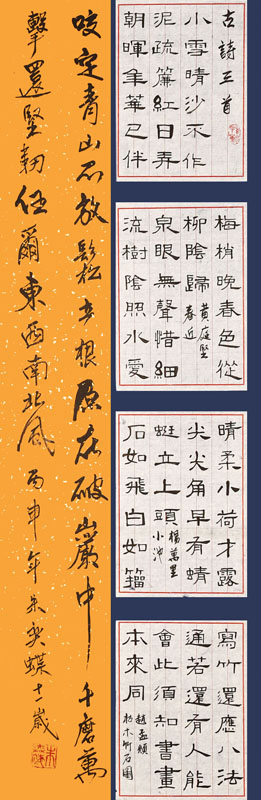 古詩三首
小雪晴沙不作
泥疏簾紅日弄
朝暉年華已伴
梅梢晚春色從
柳陰歸 黃庭堅 春近
泉眼無聲惜細
流樹陰照水愛
晴柔小荷才露
尖尖角早有蜻
蜓立上頭 楊萬里 小池
石如飛白如籀
寫竹還應八法
通若還有人能
會此須知書畫
本來同 趙孟頫 枯木竹石圖
咬定青山不放鬆立根原在破山巖中千磨萬
擊還堅韌任爾東西南北風 丙申年朱奕蝶十一歲